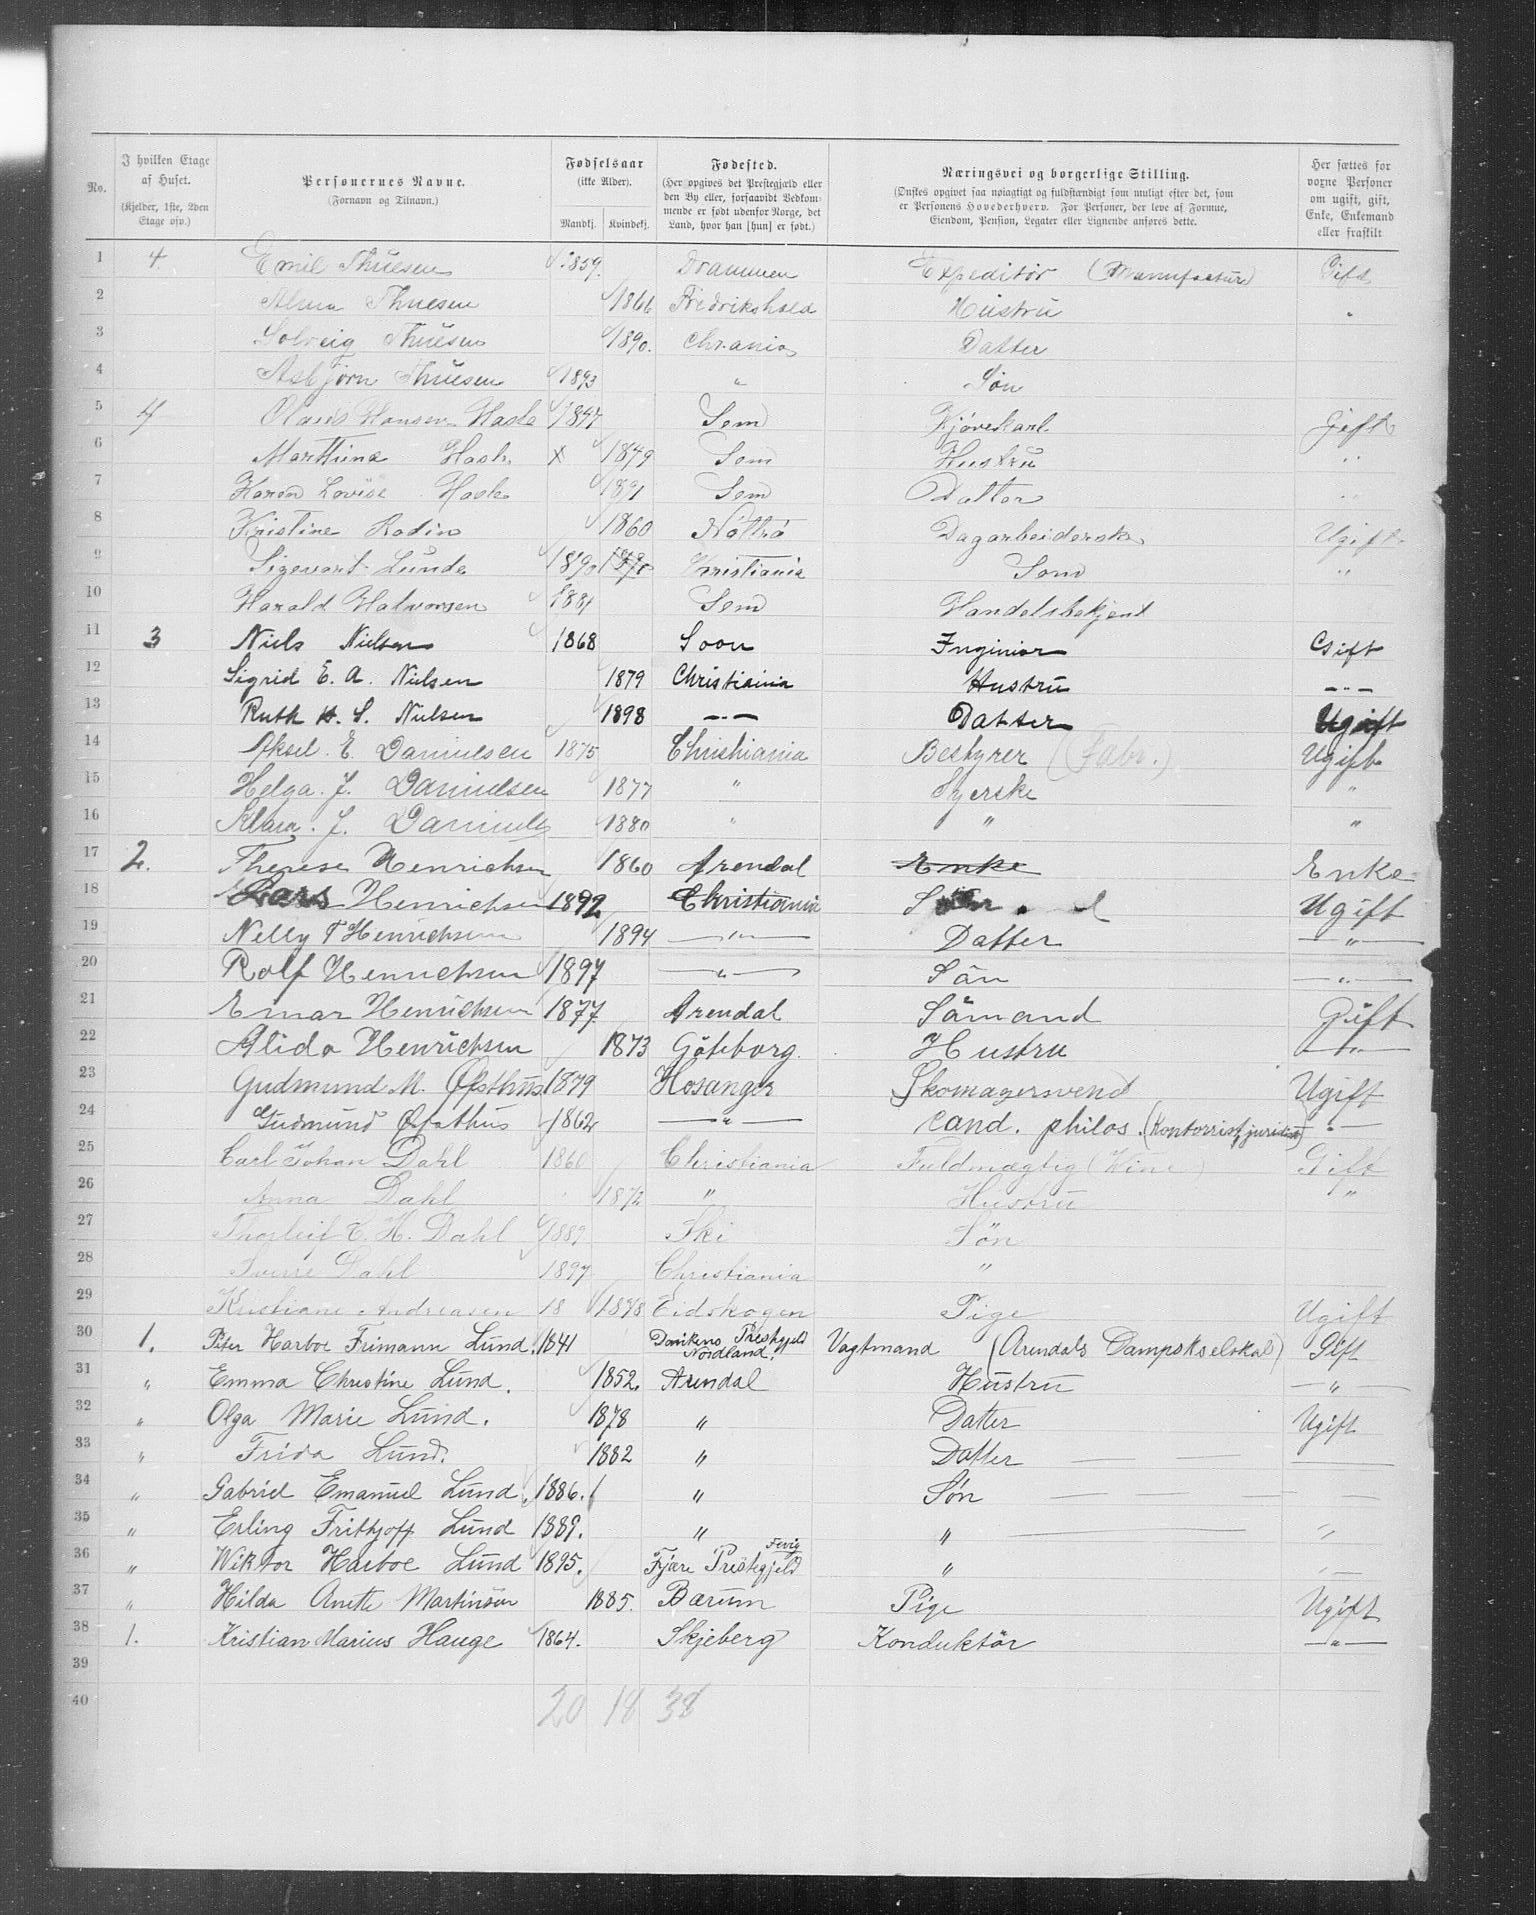 No. I hvilken Etage af Huset. (Kjelder, 1ste, 2den Etage osv.) Personernes Navne. (Fornavn og Tilnavn.) Fødselsaar (ikke Alder). Mandkj. Kvindekj. Fødested. (Her opgives det Prestegjæld eller den By eller, forsaavidt Vedkommende er født udenfor Norge, det Land, hvor han [hun] er født.) Næringsvei og borgerlige Stilling. (Ønskes opgivet saa nøiagtigt og fuldstændigt som muligt efter det, som er Personens Hovederhverv. For Personer, der leve af Formue, Eiendom, Pension, Legater eller Lignende anføres dette. Her sættes for voxne Personer om ugift, gift, Enke, Enkemand eller fraskilt
1 4. Emil Thuesen 1859. Drammen Expeditør (Manufactur) Gift
2 Alma Thuesen 1866 Fredrikshald Hustru "
3 Solveig Thuesen 1890. Chr.ania Datter
4 Asbjørn Thuesen 1893 " Søn
5 4 Olaus Hansen Hask 1847 Sem Kjørekarl Gift
6 Marthine Hask x 1849 Sem Hustru "
7 Karen Lovise Hask 1891 Sem Datter "
8 Kristine Rodin 1860 Nøtterø Dagarbeiderske Ugift
9 Sigevart Lunde 1890 Kristiania Sønn "
10 Harald Halvorsen 1881 Sem Handelsbekjent
11 3 Niels Nielsen 1868 Soon Inginiør Gift
12 Sigrid E. A. Nielsen 1879 Christiania Hustru -"-
13 Ruth H. S. Nielsen 1898 -"- Datter Ugift
14 Aksel. E. Danielsen 1875 Christiania Bestyrer (Fabr.) Ugift
15 Helga. J. Danielsen 1877 " Syerske "
16 Klara. J. Danielsen 1880 " " "
17 2. Therese Henrichsen 1860 Arendal Enke Enke
18 Lars Henrichsen 1892 Christiania Ugift
19 Nelly T Henrichsen 1894 -"- Datter -"-
20 Rolf Henrichsen 1897 -"- Sön -"-
21 Einar Henrichsen 1877 Arendal Sömand Gift
22 Alida Henrichsen 1873 Göteborg. Hustru -"-
23 Gudmund M. Øfsthus 1879 Hosanger Skomagersvend Ugift
24 Gudmund Øfsthus 1862 -"- cand. philos. (Kontorrist, juridisk) -"-
25 Carl Johan Dahl 1860 Christiania Fuldmægtig (Vine) Gift
26 Anna Dahl 1872 " Hustru "
27 Thorleif C. H. Dahl 1889 Ski Søn
28 Sverre Dahl 1897 Christiania "
29 Kristiane Andreasen 18 1878 Eidskogen Pige Ugift
30 1. Peter Harboe Frimann Lund. 1841 Dønikens Prestgjeld Nordland. Vagtmand (Arendals Dampskselskab) Gift
31 " Emma Christine Lund. 1852. Arendal Hustru -"-
32 " Olga Marie Lund. 1878 " Datter Ugift
33 " Frida Lund. 1882 " Datter
34 " Gabriel Emanuel Lund. 1886. " Søn
35 " Erling Frithjoff Lund 1889. " "
36 " Wiktor Harboe Lund 1895. Fjære Prestegjeld Fevig "
37 " Hilda Anette Martinsen 1885. Bærum Pige Ugift
38 1. Kristian Marius Hauge 1864. Skjeberg Konduktör -"-
39
40 20 18 38